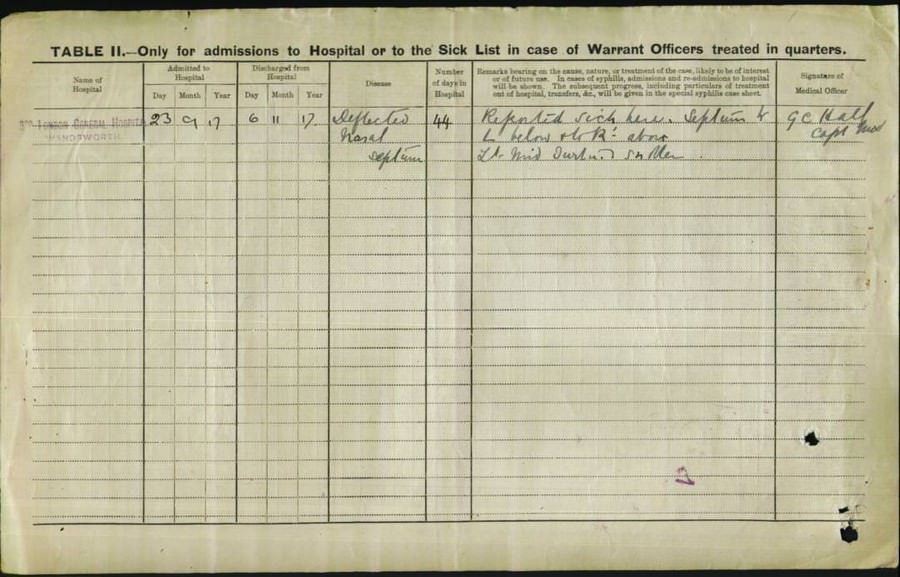 TABLE II.—Only for admissions to Hospital or to the Sick List in case of Warrant Officers treated in quarters.
Name of
Hospital
Admitted to
Hospital
Day Month Year
Discharged from
Hospital
Day Month Year
Disease
Number
of days in
Hospital
Remarks bearing on the cause, nature, or treatment of the case, likely to be of interest
or of future use. In cases of syphilis, admissions and re-admissions to hospital
will be shown. The subsequent progress, including particulars of treatment
out of hospital, transfers, &c., will be given in the special syphilis case sheet.
Signature of
Medical Officer
3RD LONDON GENERAL HOSPITAL
WANDSWORTH.
23 9 17
6 11 17
Deflected
Nasal
septum
44
Reported sick here. Septum to
L below & to R. above
Lt. Mid
G C Hall
Capt